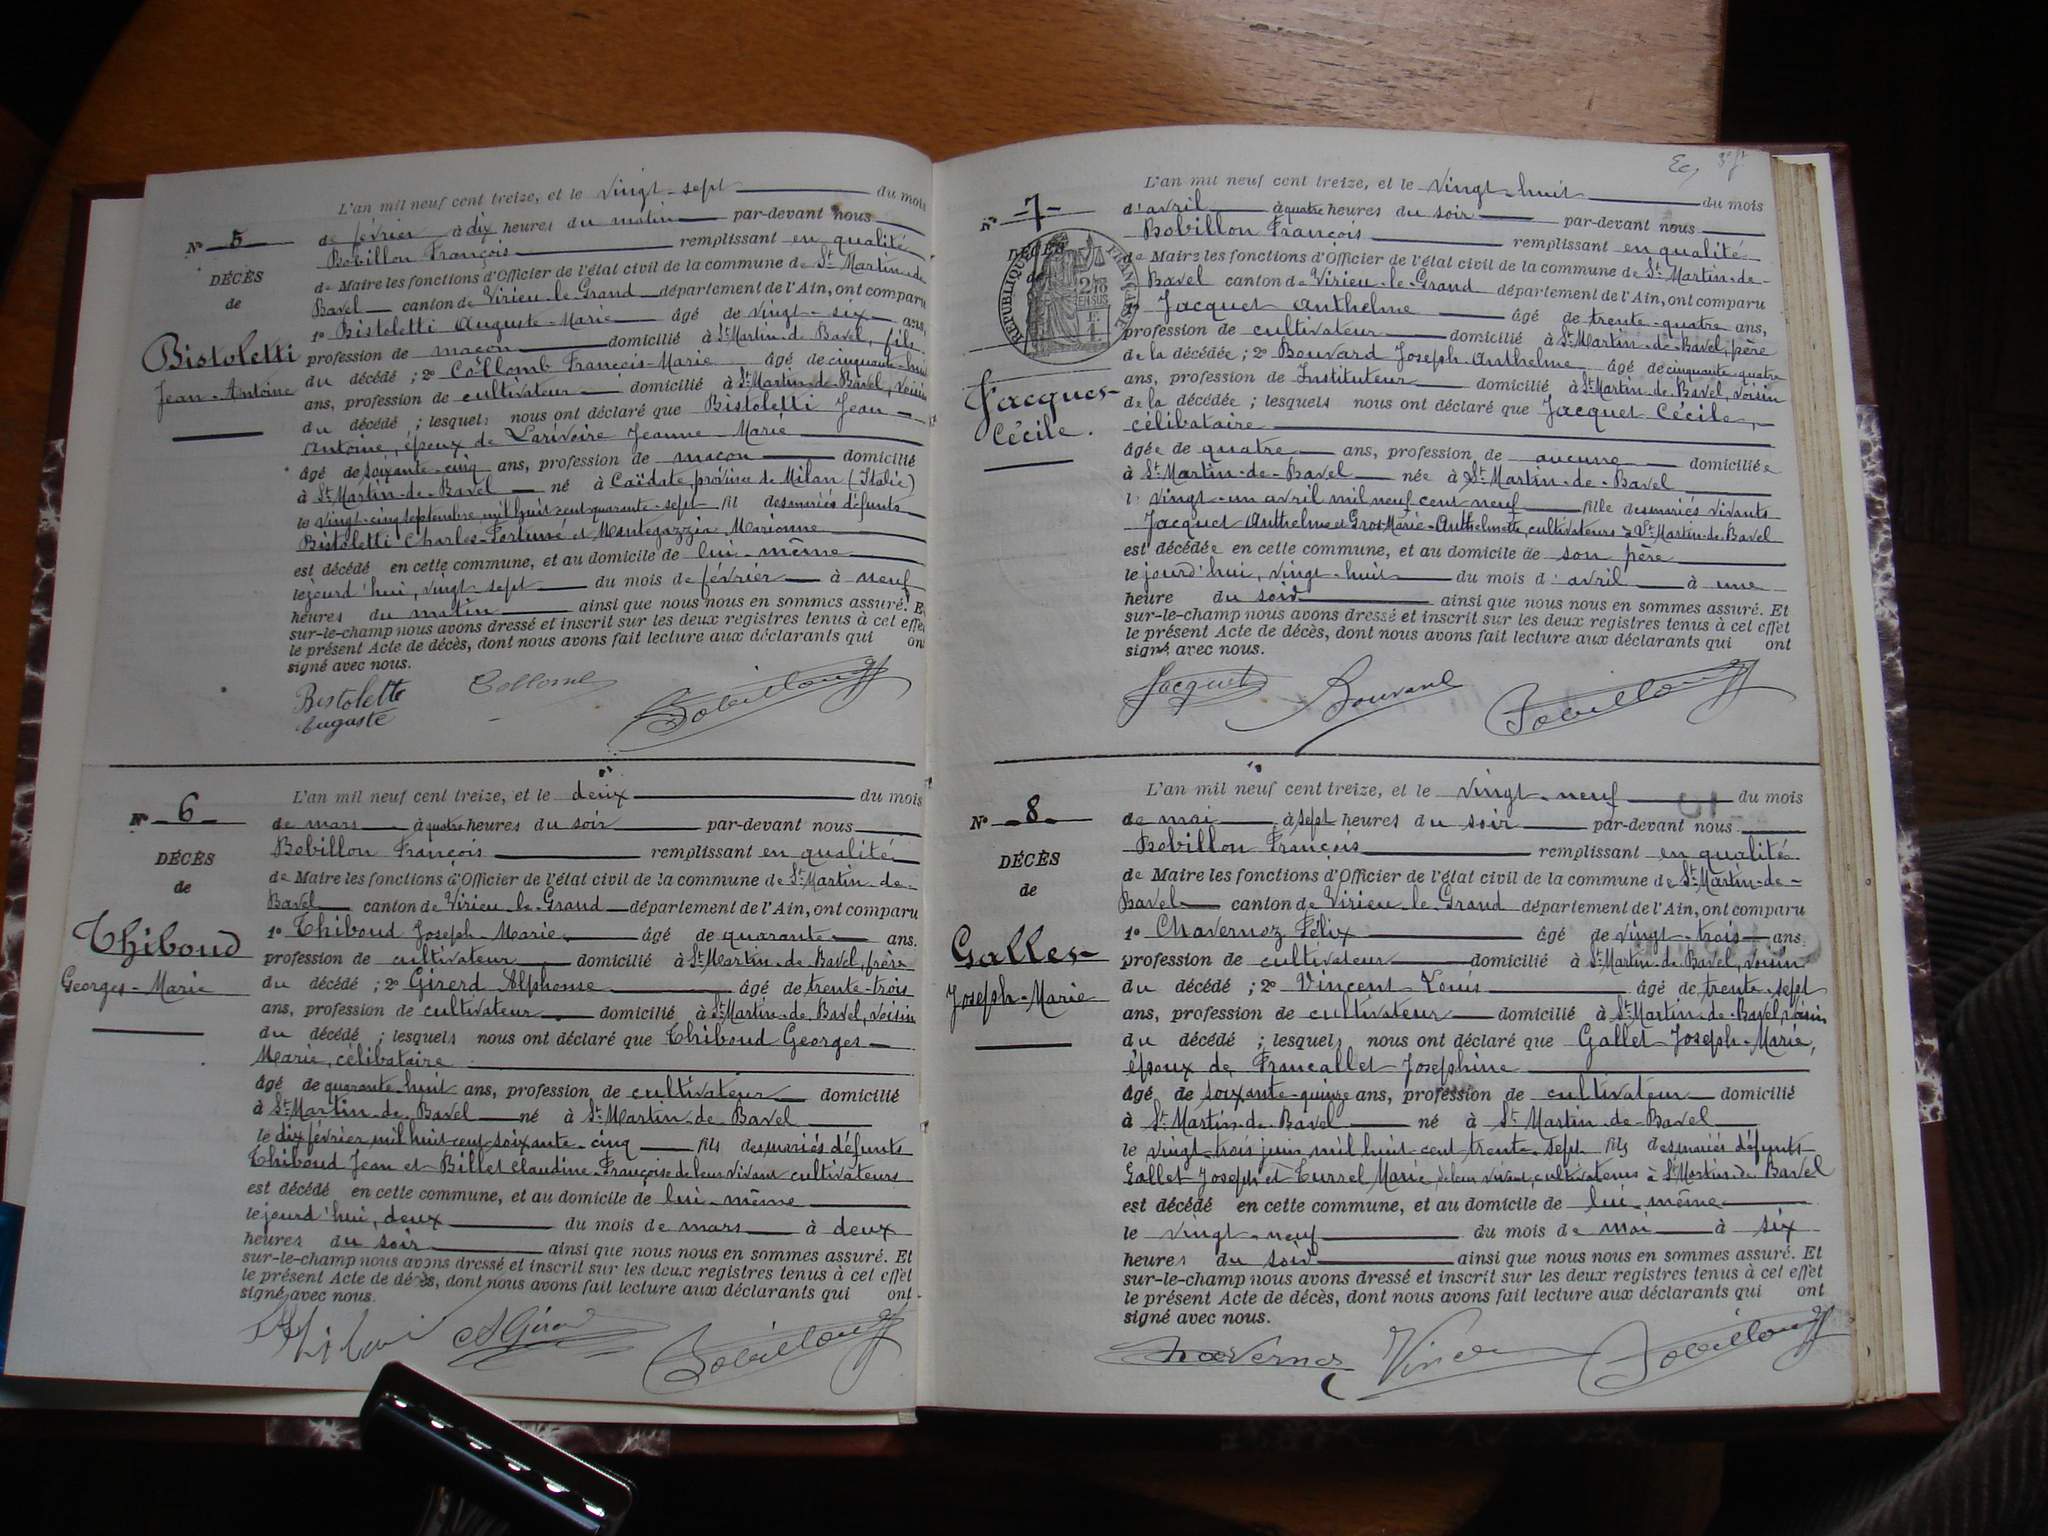 L'an mil neuf cent treize, et le vingt-sept du mois
N° 5
de février à dix heures du matin par-devant nous
Bobillon François remplissant en qualité
DÉCÈS
de Maire les fonctions d'Officier de l'état civil de la commune de St Martin-de
de
Bavel canton de Virieu-le-Grand département de l'Ain, ont comparu
1° Bistoletti Auguste-Marie âgé de vingt-six ans,
Bistoletti
profession de maçon domicilié à St Martin-de-Bavel, fils
Jean-Antoine
du décédé ; 2° Collomb François-Marie âgé de cinquante-huit
ans, profession de cultivateur domicilié à St Martin-de-Bavel, voisin
du décédé ; lesquels nous ont déclaré que Bistoletti Jean-
Antoine, époux de Larivoire Jeanne-Marie
âgé de soixante-cinq ans, profession de maçon domicilié
à St Martin-de-Bavel né à Caïdate, province de Milan (Italie)
le vingt-cinq septembre mil huit cent quarante-sept fil des mariés défunts
Bistoletti Charles-Fortuné et Montegazzia Marionne
est décédé en cette commune, et au domicile de lui-même
le jourd'hui, vingt-sept du mois de février à neuf
heures du matin ainsi que nous nous en sommes assuré. Et
sur-le-champ nous avons dressé et inscrit sur les deux registres tenus à cet effet
le présent Acte de décès, dont nous avons fait lecture aux déclarants qui ont
signé avec nous.
Bistolette Collomb Bobillon
Auguste
L'an mil neuf cent treize, et le deux du mois
N° 6
de mars à quatre heures du soir par-devant nous
Bobillon François remplissant en qualité
DÉCÈS
de Maire les fonctions d'Officier de l'état civil de la commune de St Martin-de-
de
Bavel canton de Virieu-le-Grand département de l'Ain, ont comparu
1° Thiboud Joseph-Marie âgé de quarante ans.
Thiboud
profession de cultivateur domicilié à St Martin-de-Bavel, frère
Georges-Marie
du décédé ; 2° Girerd Alphonse âgé de trente-trois
ans, profession de cultivateur domicilié à St Martin-de-Bavel, voisin
du décédé ; lesquels nous ont déclaré que Thiboud Georges-
Marie, célibataire
âgé de quarante-huit ans, profession de cultivateur domicilié
à St Martin-de-Bavel né à St Martin-de-Bavel
le dix février mil huit cent soixante-cinq fils des mariés défunts
Thiboud Jean et Billet Claudine-Françoise de leur vivant cultivateurs
est décédé en cette commune, et au domicile de lui-même
le jourd'hui, deux du mois de mars à deux
heures du soir ainsi que nous nous en sommes assuré. Et
sur-le-champ nous avons dressé et inscrit sur les deux registres tenus à cet effet
le présent Acte de décès, dont nous avons fait lecture aux déclarants qui ont
signé avec nous.
A Girerd Bobillon
L'an mil neuf cent treize, et le vingt-huit du mois
N° 7
d'avril à quatre heures du soir par-devant nous
Bobillon François remplissant en qualité
DÉCÈS
de Maire les fonctions d'Officier de l'état civil de la commune de St Martin-de-
de
RÉPUBLIQUE FRANÇAISE
2/10 EN SUS
Bavel canton de Virieu-le-Grand département de l'Ain, ont comparu
1° Jacquet Anthelme âgé de trente-quatre ans,
profession de cultivateur domicilié à St Martin-de-Bavel, père
de la décédée ; 2° Bouvard Joseph-Anthelme âgé de cinquante-quatre
Jacquet
ans, profession de Instituteur domicilié à St Martin-de-Bavel, voisin
Cécile.
de la décédée ; lesquels nous ont déclaré que Jacquet Cécile,
célibataire
âgée de quatre ans, profession de aucune domiciliée
à St Martin-de-Bavel née à St Martin-de-Bavel
le vingt-un avril mil neuf cent neuf fille des mariés vivants
Jacquet Anthelme et Gros Marie-Anthelmette, cultivateurs à St Martin-de-Bavel
est décédée en cette commune, et au domicile de son père
le jourd'hui, vingt-huit du mois d'avril à une
heure du soir ainsi que nous nous en sommes assuré. Et
sur-le-champ nous avons dressé et inscrit sur les deux registres tenus à cet effet
le présent Acte de décès, dont nous avons fait lecture aux déclarants qui ont
signé avec nous.
Jacquet Bouvard Bobillon
L'an mil neuf cent treize, et le vingt-neuf du mois
N° 8
de mai à sept heures du soir par-devant nous
Bobillon François remplissant en qualité
DÉCÈS
de Maire les fonctions d'Officier de l'état civil de la commune de St Martin-de-
de
Bavel canton de Virieu-le-Grand département de l'Ain, ont comparu
1° Chavernoz Félix âgé de vingt-trois ans.
Gallet
profession de cultivateur domicilié à St Martin-de-Bavel, voisin
Joseph-Marie
du décédé ; 2° Vincent Louis âgé de trente-sept
ans, profession de cultivateur domicilié à St Martin-de-Bavel, voisin
du décédé ; lesquels nous ont déclaré que Gallet Joseph-Marie,
époux de Francallet Joséphine
âgé de soixante-quinze ans, profession de cultivateur domicilié
à St Martin-de-Bavel né à St Martin-de-Bavel
le vingt-trois juin mil huit cent trente-sept fils des mariés défunts
Gallet Joseph et Turrel Marie, de leur vivant, cultivateurs à St Martin-de-Bavel
est décédé en cette commune, et au domicile de lui-même
le vingt-neuf du mois de mai à six
heures du soir ainsi que nous nous en sommes assuré. Et
sur-le-champ nous avons dressé et inscrit sur les deux registres tenus à cet effet
le présent Acte de décès, dont nous avons fait lecture aux déclarants qui ont
signé avec nous.
Chavernoz Vincent Bobillon